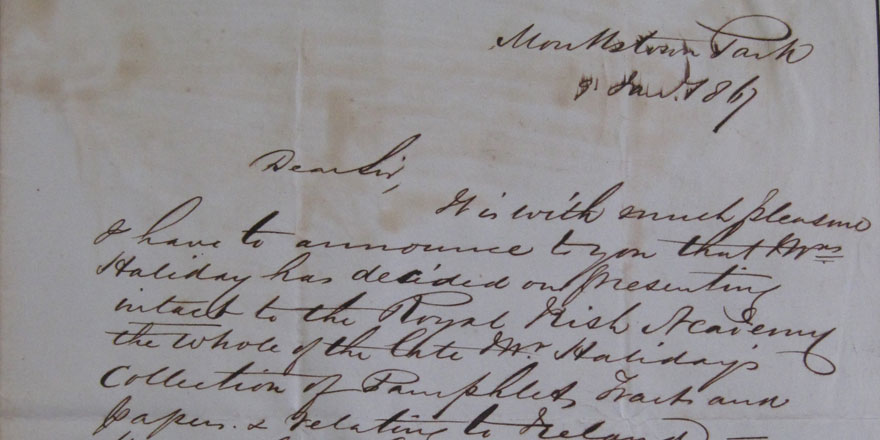 Monkstown Park
Jan. 1867
Dear Sir,
It is with much pleasure
I have to announce to you that Mrs
Haliday has decided on presenting
intact to the Royal Irish Academy
the whole of the late Mr. Haliday's
Collection of Pamphlets Tracts and
Papers & relating to Ireland